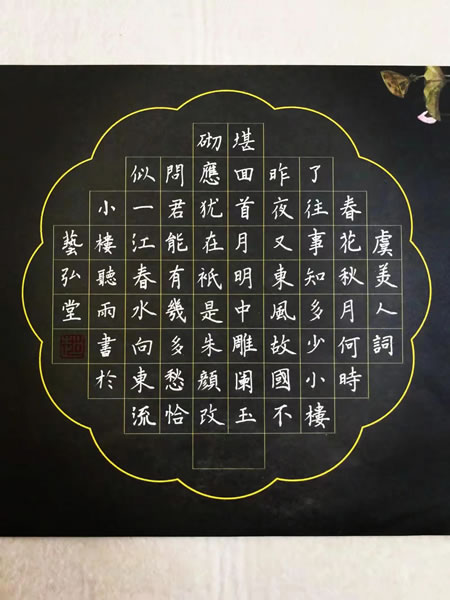 虞美人詞
春花秋月何時
了往事知多少小樓
昨夜又東風故國不
堪回首月明中雕闌玉
砌應猶在衹是朱顏改
問君能有幾多愁恰
似一江春水向東流
小樓聽雨書於
藝弘堂